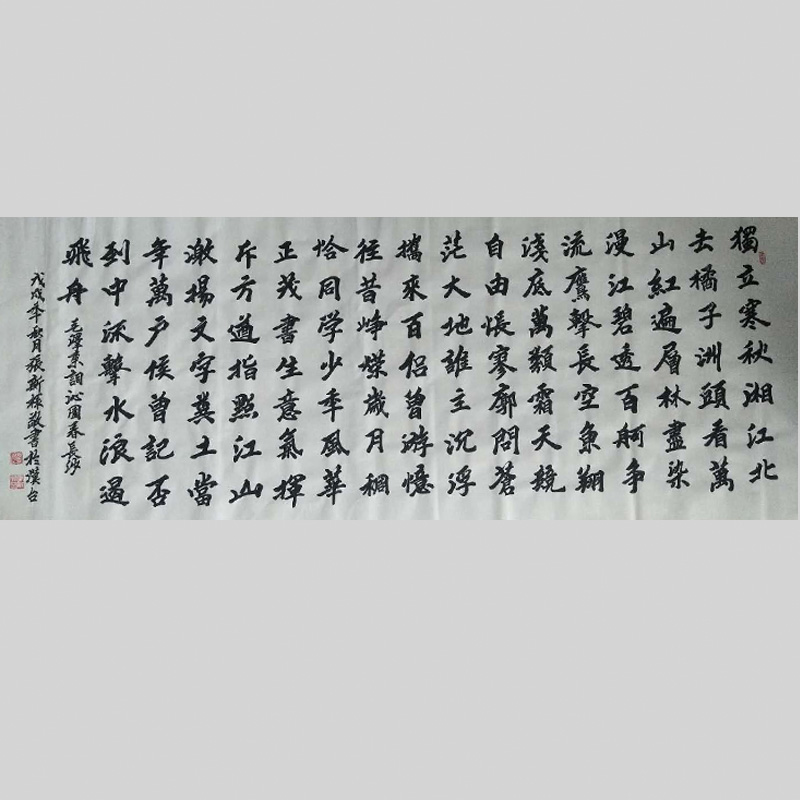 獨立寒秋湘江北
去橘子洲頭看萬
山紅遍層林盡染
漫江碧透百舸争
流鷹擊長空魚翔
淺底萬類霜天競
自由悵寥廓問蒼
茫大地誰主沉浮
攜來百侶曾游憶
往昔崢嶸歲月稠
恰同学少年風華
正茂書生意氣揮
斥方遒指點江山
激揚文字糞土當
年萬户侯曾記否
到中流擊水浪遏
飛舟
毛澤東詞沁園春長沙
戊戌年秋月張新敬書於漢台